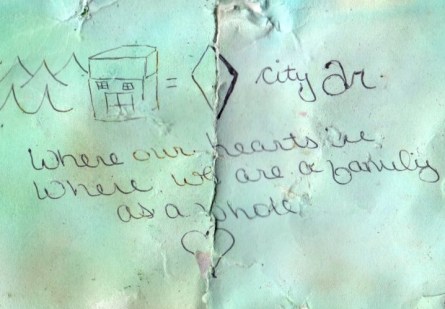 = city Dr.
Where our hearts are
where we are a family
as a whole